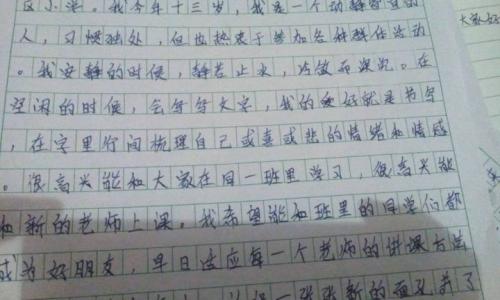 我今年十三岁,我是一个动静皆宜的
人,习惯独处,但也热衷于参加各种群体活动
。我安静的时候,静若止水,冷敛而深沉。在
空闲的时候,会写写文字,我的爱好就是书写
,在字里行间梳理自己或喜或悲的情绪和情感
。很高兴能和大家在同一班里学习,很高兴能
和新的老师上课。我希望能和班里的同学们都
成为好朋友,早日适应每一个老师的讲课方法
一张张新的面孔
大家好